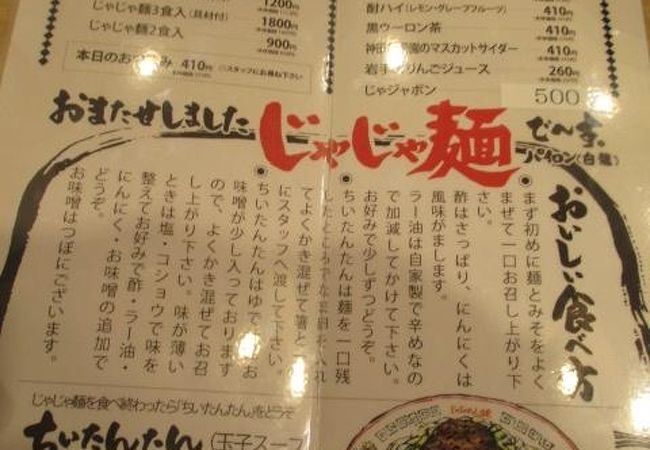 1200円
じゃじゃ麺3食入(具材付) 1800円
じゃじゃ麺2食入
900円
本日のお み 410円
酎ハイ(レモン・グレープフルーツ) 410円
黒ウーロン茶 410円
のマスカットサイダー 410円
岩手 りんごジュース 260円
じゃジャポン 500
おまたせしました
じゃじゃ麺
でんす
パイロン(白龍)
おいしい食べ方
まず初めに麺とみそをよく
まぜて一口お召し上がり下
さい。
酢はさっぱり、にんにくは
風味がまします。
ラー油は自家製で辛めなの
で加減してかけて下さい。
お好みで少しずつどうぞ。
ちいたんたんは麺を一口残
したところで
てよくかき混ぜて箸と
にスタッフへ渡して下さい。
ちいたんたんはゆで
味噌が少し入っております
ので、よくかき混ぜてお召
し上がり下さい。味が薄い
ときは塩・コショウで味を
整えてお好みで酢・ラー油・
にんにく・お味噌の追加で
どうぞ。
お味噌はつぼにございます。
じゃじゃ麺を食べ終わったら「ちいたんたん」をどうぞ
ちいたんたん(玉子スープ